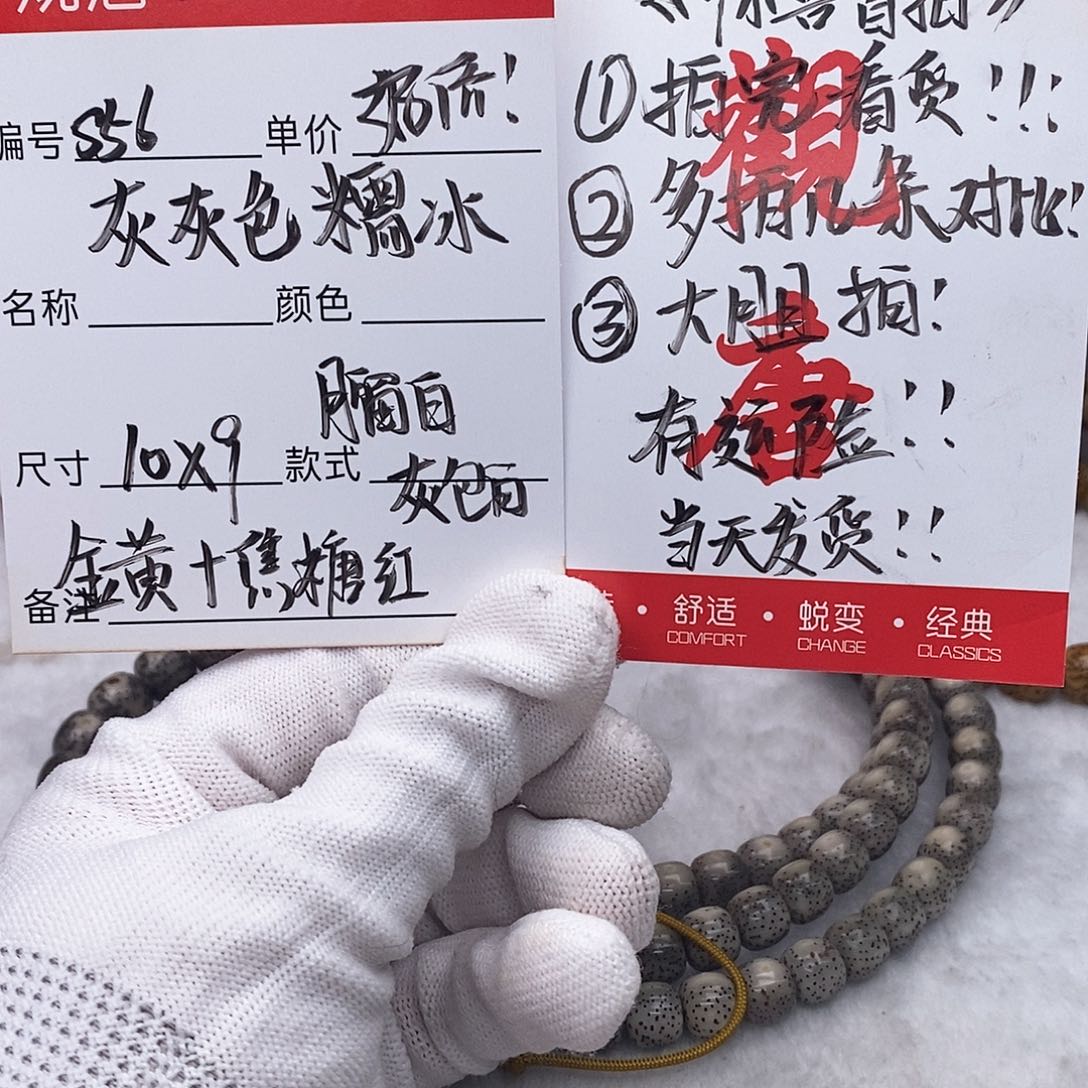 编号 S56 单价 扬价!
灰灰色糯冰
名称 颜色
腼白
尺寸 10X9 款式
灰包白
备注 金黄十焦糖红
①拍完看货!!!
②多拍几条对比!
③大胆拍!
有运险!!
当天发货!!
觀
喜
• 舒适 • 蜕变 • 经典
COMFORT CHANGE CLASSICS